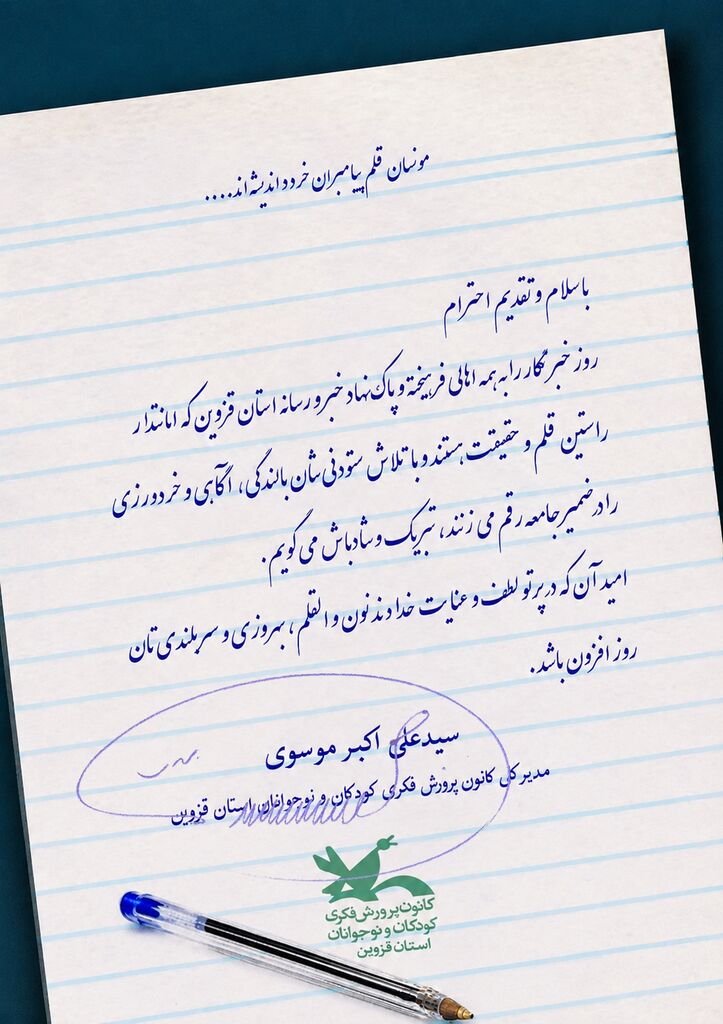 مونسان قلم پیامبران خرد و اندیشه‌اند....
با سلام و تقدیم احترام
روز خبرنگار را به همه اهالی فرهیخته و پاک‌نهاد خبر و رسانه استان قزوین که امانتدار
راستین قلم و حقیقت هستند و با تلاش ستودنی‌شان بالندگی، آگاهی و خردورزی
را در ضمیر جامعه رقم می زنند، تبریک و شادباش می گویم.
امید آن که در پرتو لطف و عنایت خداوند نون و القلم، بهروزی و سربلندی تان
روز افزون باشد.
سیدعلی اکبر موسوی
مدیرکل کانون پرورش فکری کودکان و نوجوانان استان قزوین
کانون پرورش فکری
کودکان و نوجوانان
استان قزوین